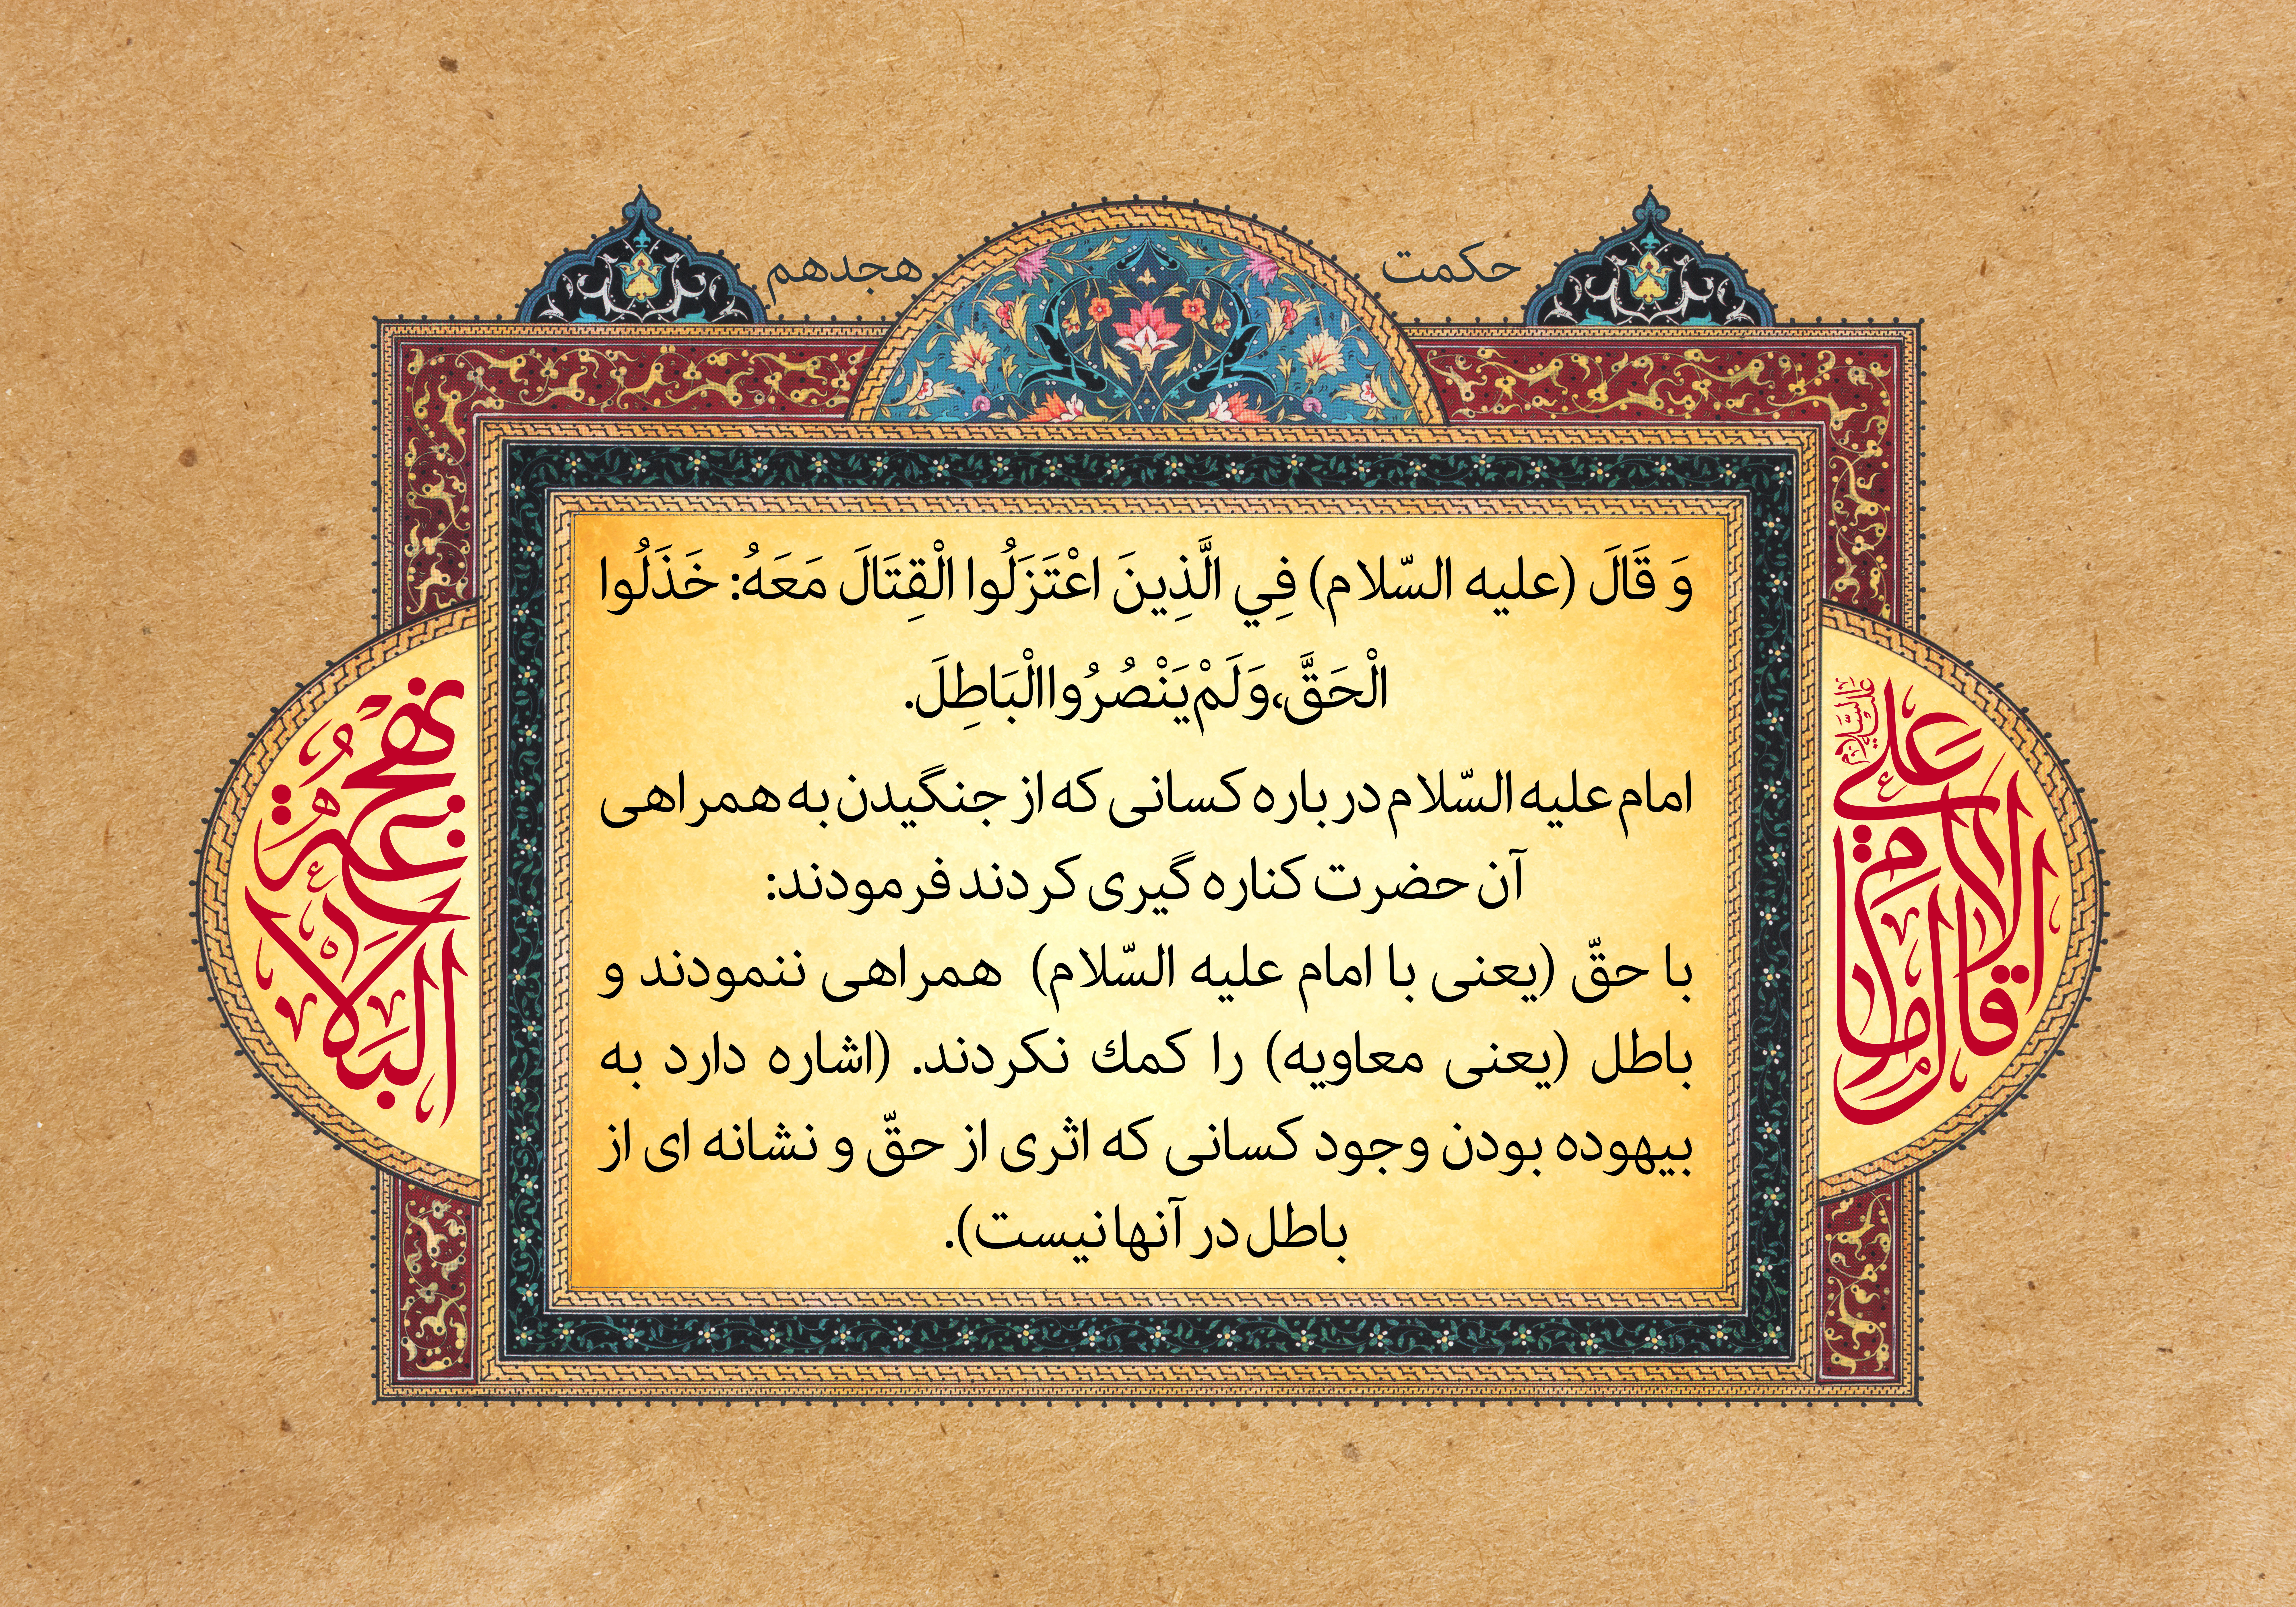 حکمت هجدهم
وَ قَالَ (علیه السّلام) فِي الَّذِينَ اعْتَزَلُوا الْقِتَالَ مَعَهُ: خَذَلُوا
الْحَقَّ، وَ لَمْ يَنْصُرُوا الْبَاطِلَ.
امام علیه السّلام در باره کسانی که از جنگیدن به همراهی
آن حضرت کناره گیری کردند فرمودند:
با حقّ (یعنی با امام علیه السّلام) همراهی ننمودند و
باطل (یعنی معاویه) را کمك نکردند. (اشاره دارد به
بیهوده بودن وجود کسانی که اثری از حقّ و نشانه ای از
باطل در آنها نیست).
قال الامام علی علیه السلام
نهج البلاغه